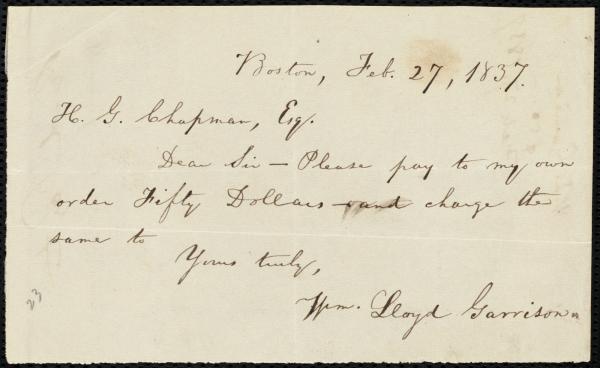 Boston, Feb. 27, 1837.
H. G. Chapman, Esq.
Dear Sir — Please pay to my own
order Fifty Dollars — and charge the
same to
Yours truly,
Wm. Lloyd Garrison
23